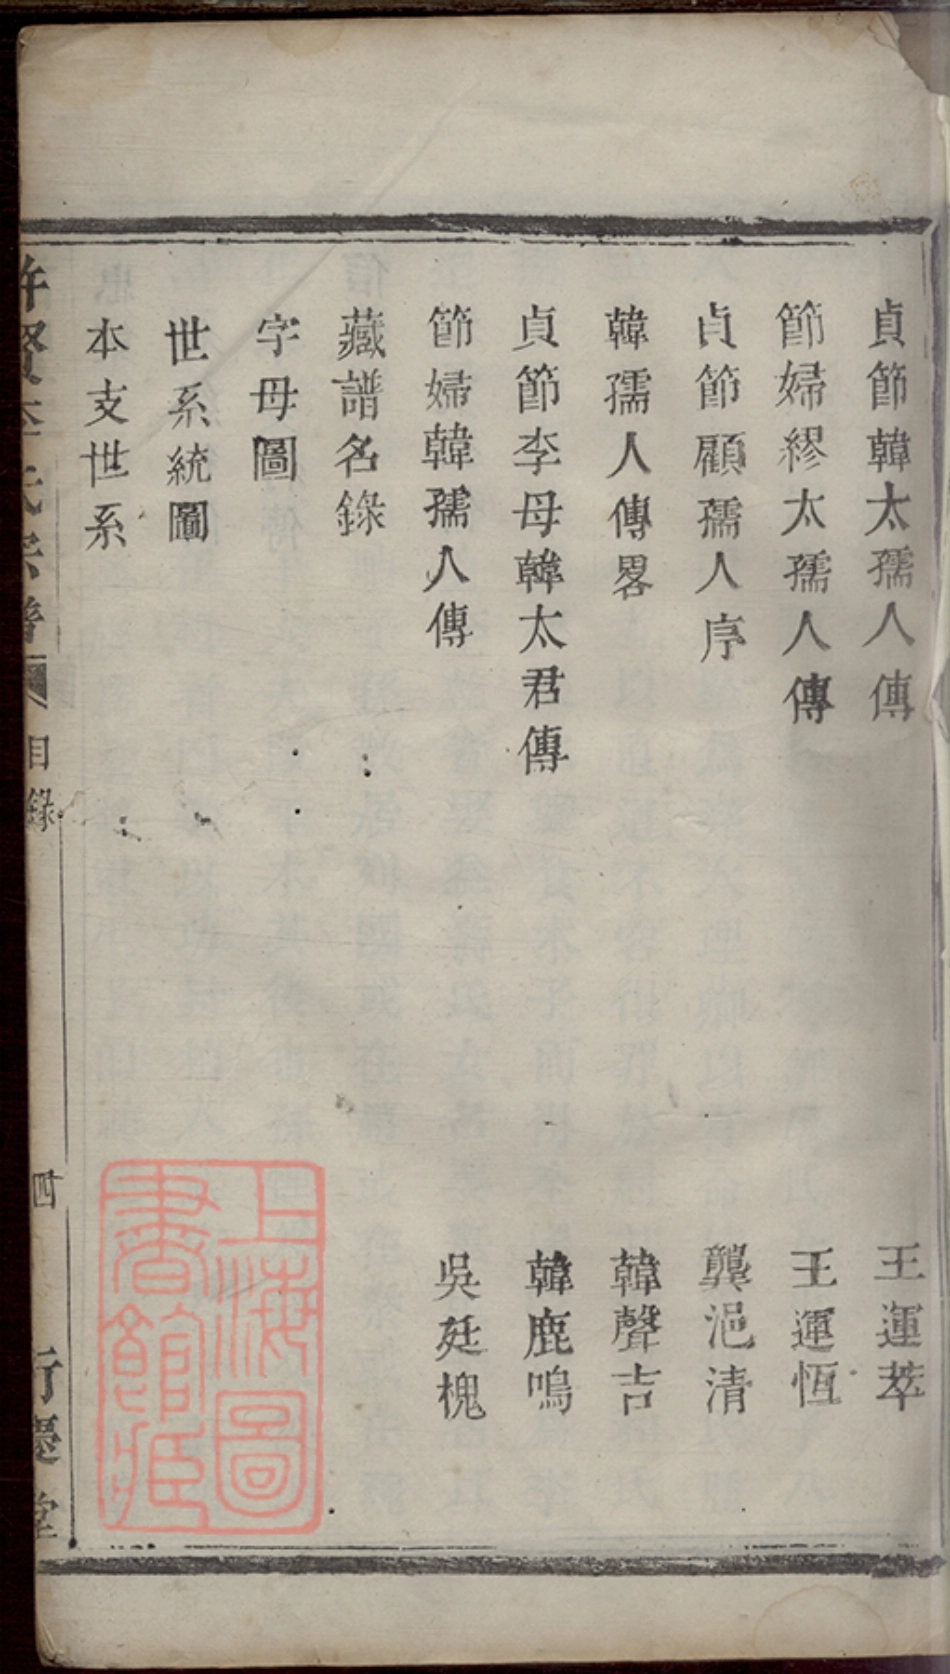 貞節韓太孺人傳 王運萃
節婦繆太孺人傳 王運恆
貞節顧孺人序 龔浥清
韓孺人傳畧 韓聲吉
貞節李母韓太君傳 韓鹿鳴
節婦韓孺人傳 吳廷槐
藏譜名錄
字母圖
世系統圖
本支世系
李氏宗譜 目錄 四 慶堂
上海圖書館藏